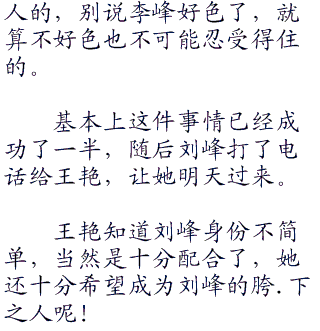 人的，别说李峰好色了，就
算不好色也不可能忍受得住
的。
基本上这件事情已经成
功了一半，随后刘峰打了电
话给王艳，让她明天过来。
王艳知道刘峰身份不简
单，当然是十分配合了，她
还十分希望成为刘峰的胯.下
之人呢！